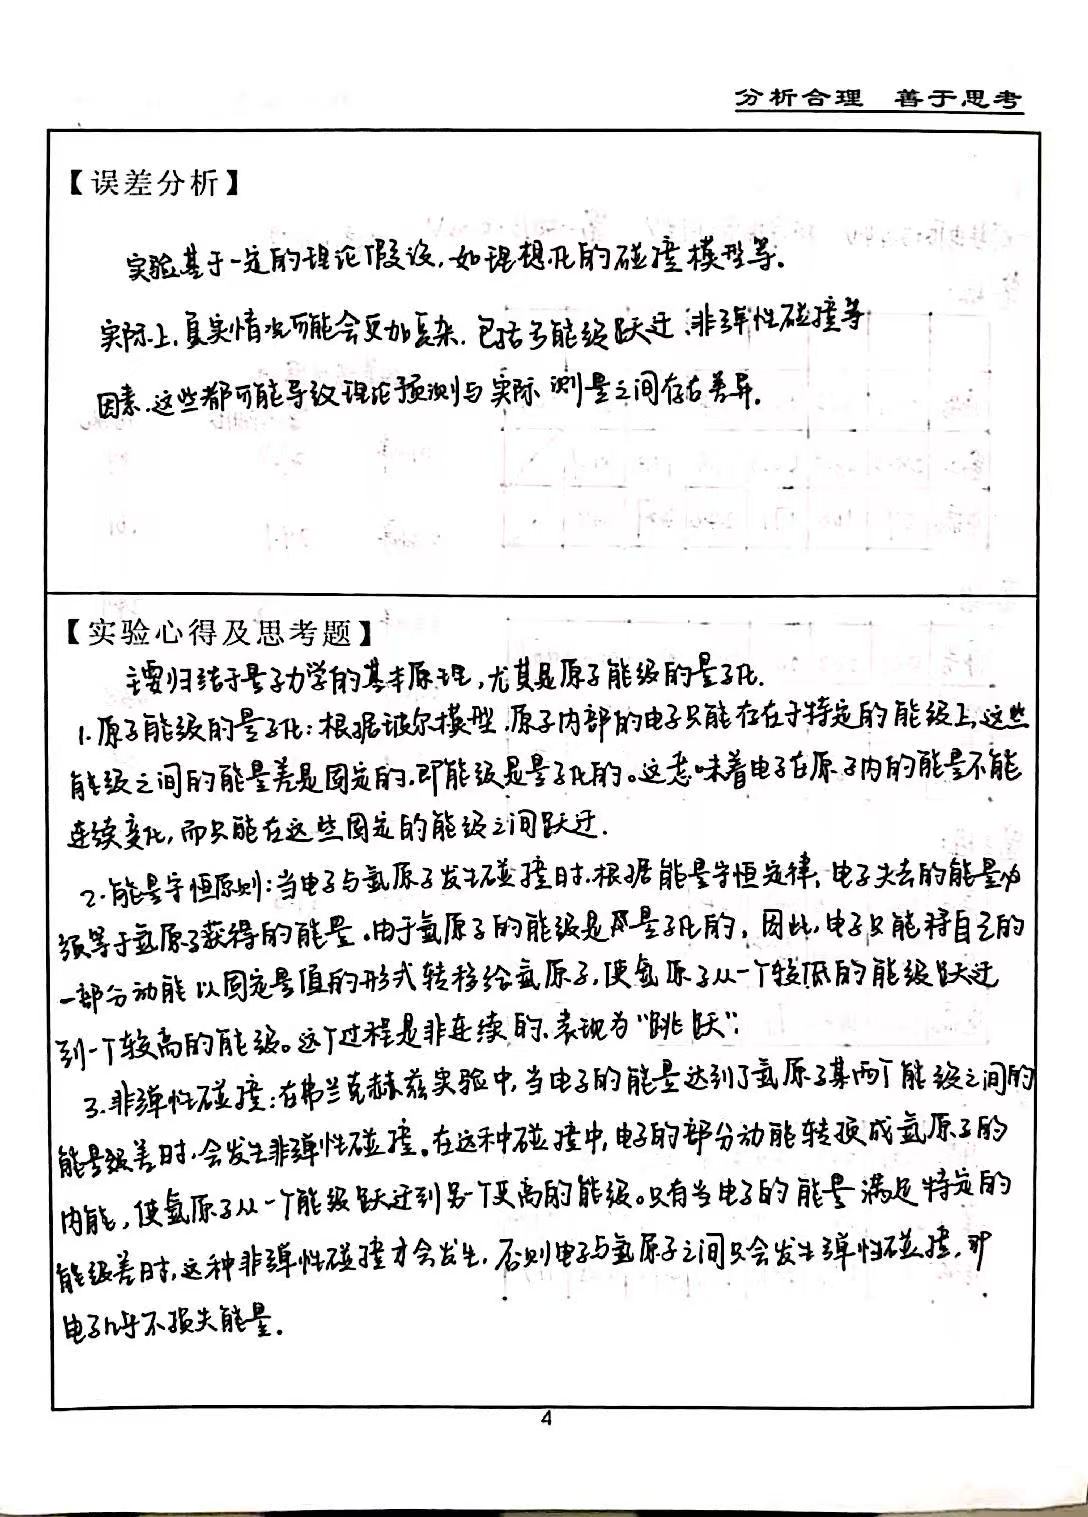 分析合理 善于思考
【误差分析】
实验基于一定的理论假设,如理想化的碰撞模型等.
实际上,真实情况可能会更加复杂.包括多能级跃迁、非弹性碰撞等
因素.这些都可能导致理论预测与实际测量之间存在差异.
【实验心得及思考题】
主要归结于量子力学的基本原理,尤其是原子能级的量子化.
1.原子能级的量子化:根据玻尔模型.原子内部的电子只能存在于特定的能级上,这些
能级之间的能量差是固定的.即能级是量子化的。这意味着电子在原子内的能量不能
连续变化,而只能在这些固定的能级之间跃迁.
2.能量守恒原则:当电子与氩原子发生碰撞时.根据能量守恒定律,电子失去的能量必
须等于氩原子获得的能量.由于氩原子的能级是量子化的,因此,电子只能将自己的
一部分动能以固定量值的形式转移给氩原子,使氩原子从一个较低的能级跃迁
到一个较高的能级。这个过程是非连续的.表现为“跳跃”.
3.非弹性碰撞:在弗兰克赫兹实验中,当电子的能量达到了氩原子某两个能级之间的
能量级差时,会发生非弹性碰撞。在这种碰撞中,电子的部分动能转换成氩原子的
内能,使氩原子从一个能级跃迁到另一个更高的能级。只有当电子的能量满足特定的
能级差时,这种非弹性碰撞才会发生,否则电子与氩原子之间只会发生弹性碰撞,即
电子几乎不损失能量.
4